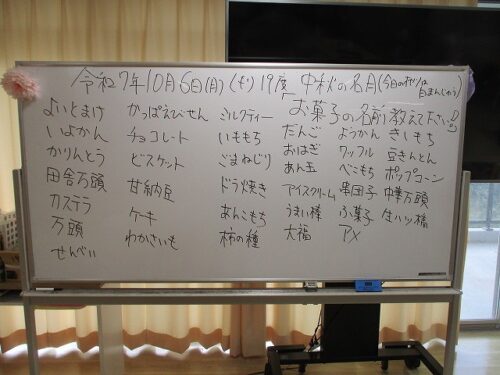 令和7年10月6日(月)(くもり)19度 中秋の名月(今日のおやつは白まんじゅう)
「お菓子の名前教えて下さい」
よいとまけ かっぱえびせん ミルクティー だんご ようかん きいもち
いよかん チョコレート いももち おはぎ ワッフル 豆きんとん
かりんとう ビスケット ごまねじり あん玉 べこもち ポップコーン
田舎万頭 甘納豆 ドラ焼き アイスクリーム 串団子 中華万頭
カステラ ケーキ あんこもち うまい棒 ふ菓子 生ハツ橋
万頭 わかさいも 柿の種 大福 アメ
せんべい